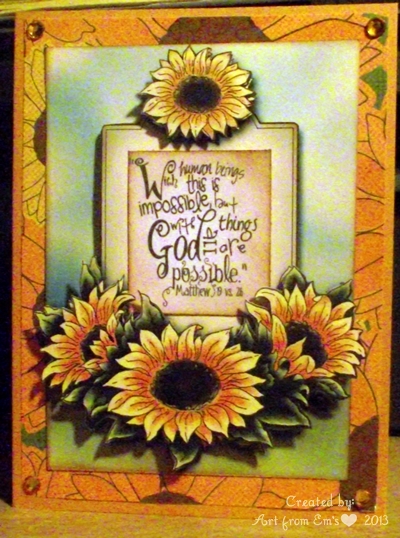 With human beings
this is
impossible, but
with
God all things
are
possible."
Matthew 19 vs. 26
Created by:
Art from Em's 2013